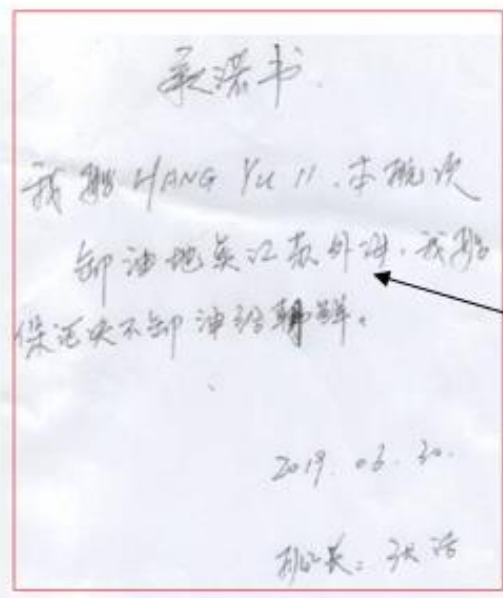 承诺书.
我船 HANG YU 11. 本航次
卸油地点江苏外海. 我船
保证决不卸油给朝鲜.
2019.03.30.
船长: 张